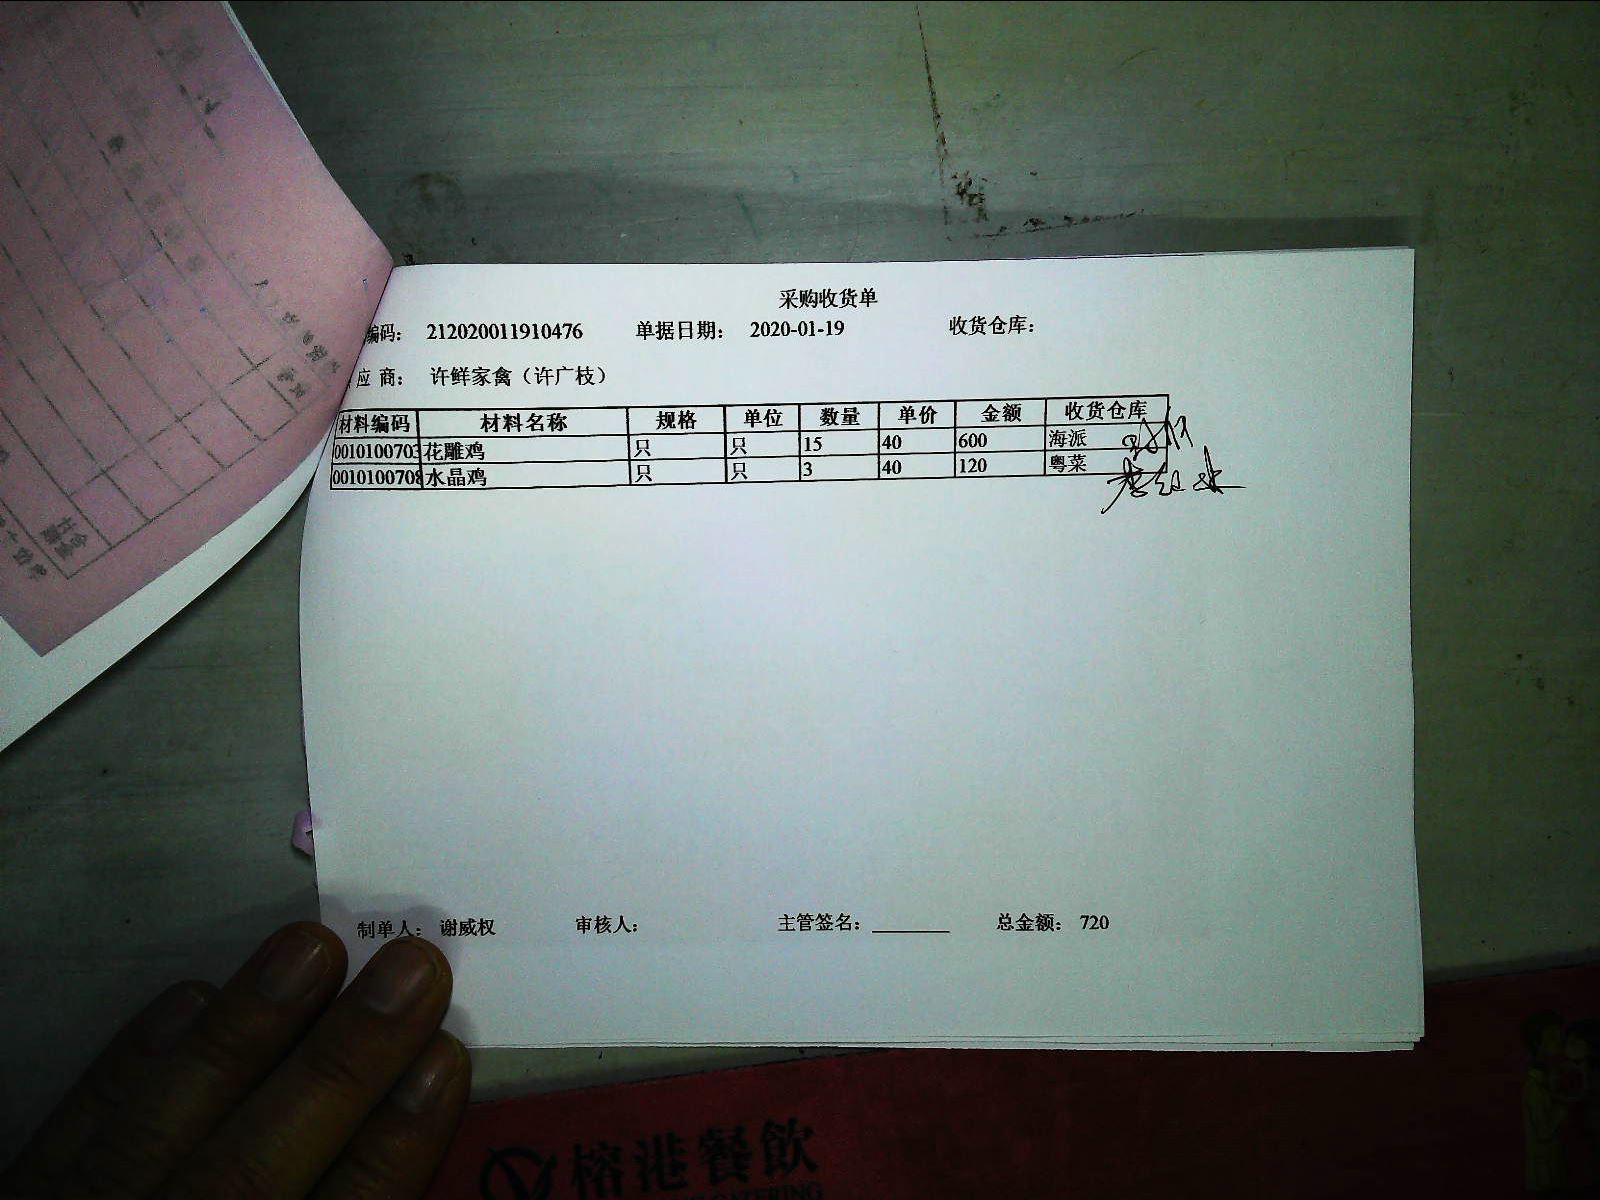 采购收货单
编码： 212020011910476 单据日期： 2020-01-19 收货仓库：
应 商： 许鲜家禽（许广枝）
材料编码 材料名称 规格 单位 数量 单价 金额 收货仓库
0010100703 花雕鸡 只 只 15 40 600 海派
0010100708 水晶鸡 只 只 3 40 120 粤菜
制单人： 谢威权 审核人： 主管签名： 总金额： 720
榕港餐飲